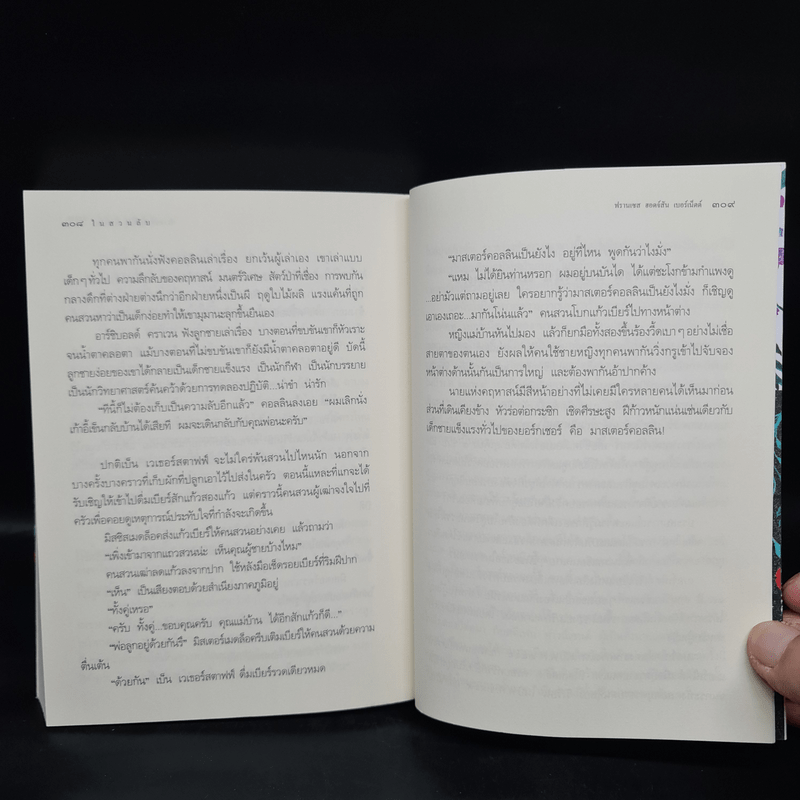 ๓๐๘ ในสวนลับ
ทุกคนพากันนั่งฟังคอลลินเล่าเรื่อง ยกเว้นผู้เล่าเอง เขาเล่าแบบ
เด็กๆ ทั่วไป ความลึกลับของคฤหาสน์ มนตร์วิเศษ สัตว์ป่าที่เชื่อง การพบกัน
กลางดึกที่ต่างฝ่ายต่างนึกว่าอีกฝ่ายหนึ่งเป็นผี ฤดูใบไม้ผลิ แรงแค้นที่ถูก
คนสวนหาว่าเป็นเด็กง่อยทำให้เขามุมานะลุกขึ้นยืนเอง
อาร์ชิบอลด์ คราเวน ฟังลูกชายเล่าเรื่อง บางตอนที่ขบขันเขาก็หัวเราะ
จนน้ำตาคลอตา แม้บางตอนที่ไม่ขบขันเขาก็ยังมีน้ำตาคลอตาอยู่ดี บัดนี้
ลูกชายง่อยของเขาได้กลายเป็นเด็กชายแข็งแรง เป็นนักกีฬา เป็นนักบรรยาย
เป็นนักวิทยาศาสตร์ค้นคว้าด้วยการทดลองปฏิบัติ...น่าขำ น่ารัก
“ทีนี้ก็ไม่ต้องเก็บเป็นความลับอีกแล้ว” คอลลินลงเอย “ผมเลิกนั่ง
เก้าอี้เข็นกลับบ้านได้เสียที ผมจะเดินกลับกับคุณพ่อนะครับ”
ปกติเป็น เวเธอร์สตาฟฟ์ จะไม่ใคร่พ้นสวนไปไหนนัก นอกจาก
บางครั้งบางคราวที่เก็บผักที่ปลูกเอาไว้ไปส่งในครัว ตอนนี้แหละที่แกจะได้
รับเชิญให้เข้าไปดื่มเบียร์สักแก้วสองแก้ว แต่คราวนี้คนสวนผู้เฒ่าจงใจไปที่
ครัวเพื่อคอยดูเหตุการณ์ประทับใจที่กำลังจะเกิดขึ้น
มิสซิสเมดล็อคส่งแก้วเบียร์ให้คนสวนอย่างเคย แล้วถามว่า
“เพิ่งเข้ามาจากแถวสวนน่ะ เห็นคุณผู้ชายบ้างไหม”
คนสวนเฒ่าลดแก้วลงจากปาก ใช้หลังมือเช็ดรอยเบียร์ที่ริมฝีปาก
“เห็น” เป็นเสียงตอบด้วยสำเนียงภาคภูมิอยู่
“ทั้งคู่เหรอ”
“ครับ ทั้งคู่...ขอบคุณครับ คุณแม่บ้าน ได้อีกสักแก้วก็ดี...”
“พ่อลูกอยู่ด้วยกันรึ” มิสเตอร์เมดล็อครีบเติมเบียร์ให้คนสวนด้วยความ
ตื่นเต้น
“ด้วยกัน” เป็น เวเธอร์สตาฟฟ์ ดื่มเบียร์รวดเดียวหมด
ฟรานเซส ฮอดจ์สัน เบอร์เน็ตต์ ๓๐๙
“มาสเตอร์คอลลินเป็นยังไง อยู่ที่ไหน พูดกันว่าไงมั่ง”
“แหม ไม่ได้ยินท่านหรอก ผมอยู่บนบันได ได้แต่ชะโงกข้ามกำแพงดู
...อย่ามัวแต่ถามอยู่เลย ใครอยากรู้ว่ามาสเตอร์คอลลินเป็นยังไงมั่ง ก็เชิญดู
เอาเองเถอะ...มากันโน่นแล้ว” คนสวนโบกแก้วเบียร์ไปทางหน้าต่าง
หญิงแม่บ้านหันไปมอง แล้วก็ยกมือทั้งสองขึ้นร้องวี้ดเบาๆ อย่างไม่เชื่อ
สายตาของตนเอง ยังผลให้คนใช้ชายหญิงทุกคนพากันวิ่งกรูเข้าไปจับจอง
หน้าต่างด้านนั้นกันเป็นการใหญ่ และต้องพากันอ้าปากค้าง
นายแห่งคฤหาสน์มีสีหน้าอย่างที่ไม่เคยมีใครหลายคนได้เห็นมาก่อน
ส่วนที่เดินเคียงข้าง หัวร่อต่อกระซิก เชิดศีรษะสูง ฝีก้าวหนักแน่นเช่นเดียวกับ
เด็กชายแข็งแรงทั่วไปของยอร์กเชอร์ คือ มาสเตอร์คอลลิน!